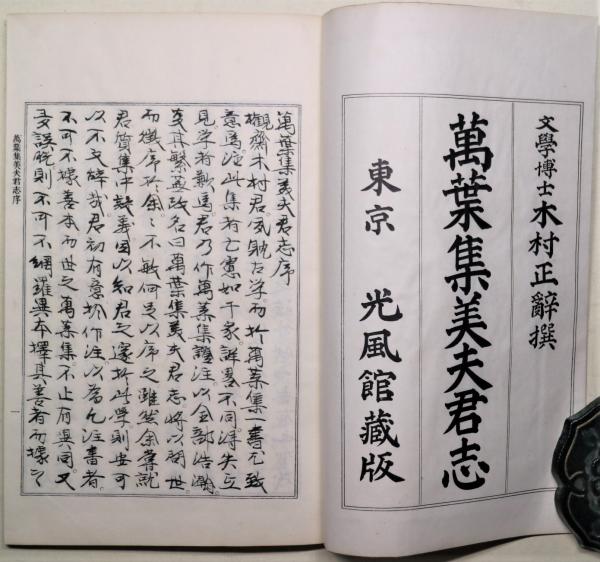 文學博士木村正辭撰
萬葉集美夫君志
東京 光風館藏版
萬葉集美夫君志序
欟齋木村君夙耽古学而於萬葉集一書尤致
意焉注此集者亡慮如千家詳畧不同得失互
見学者歎焉君乃作萬葉集注以全部浩瀚
芟其繁改名曰萬葉集美夫君志将以問世
而徴序於余々不敏何足以序之雖然余嘗就
君質集中疑義因以知君之邃於此学則安可
以不文辭哉君初有意於作注以為凡注書者
不可不據善本而世之萬葉集不止有異同又
多誤脱則不可不網羅異本擇其善者而據之
萬葉集美夫君志序
一